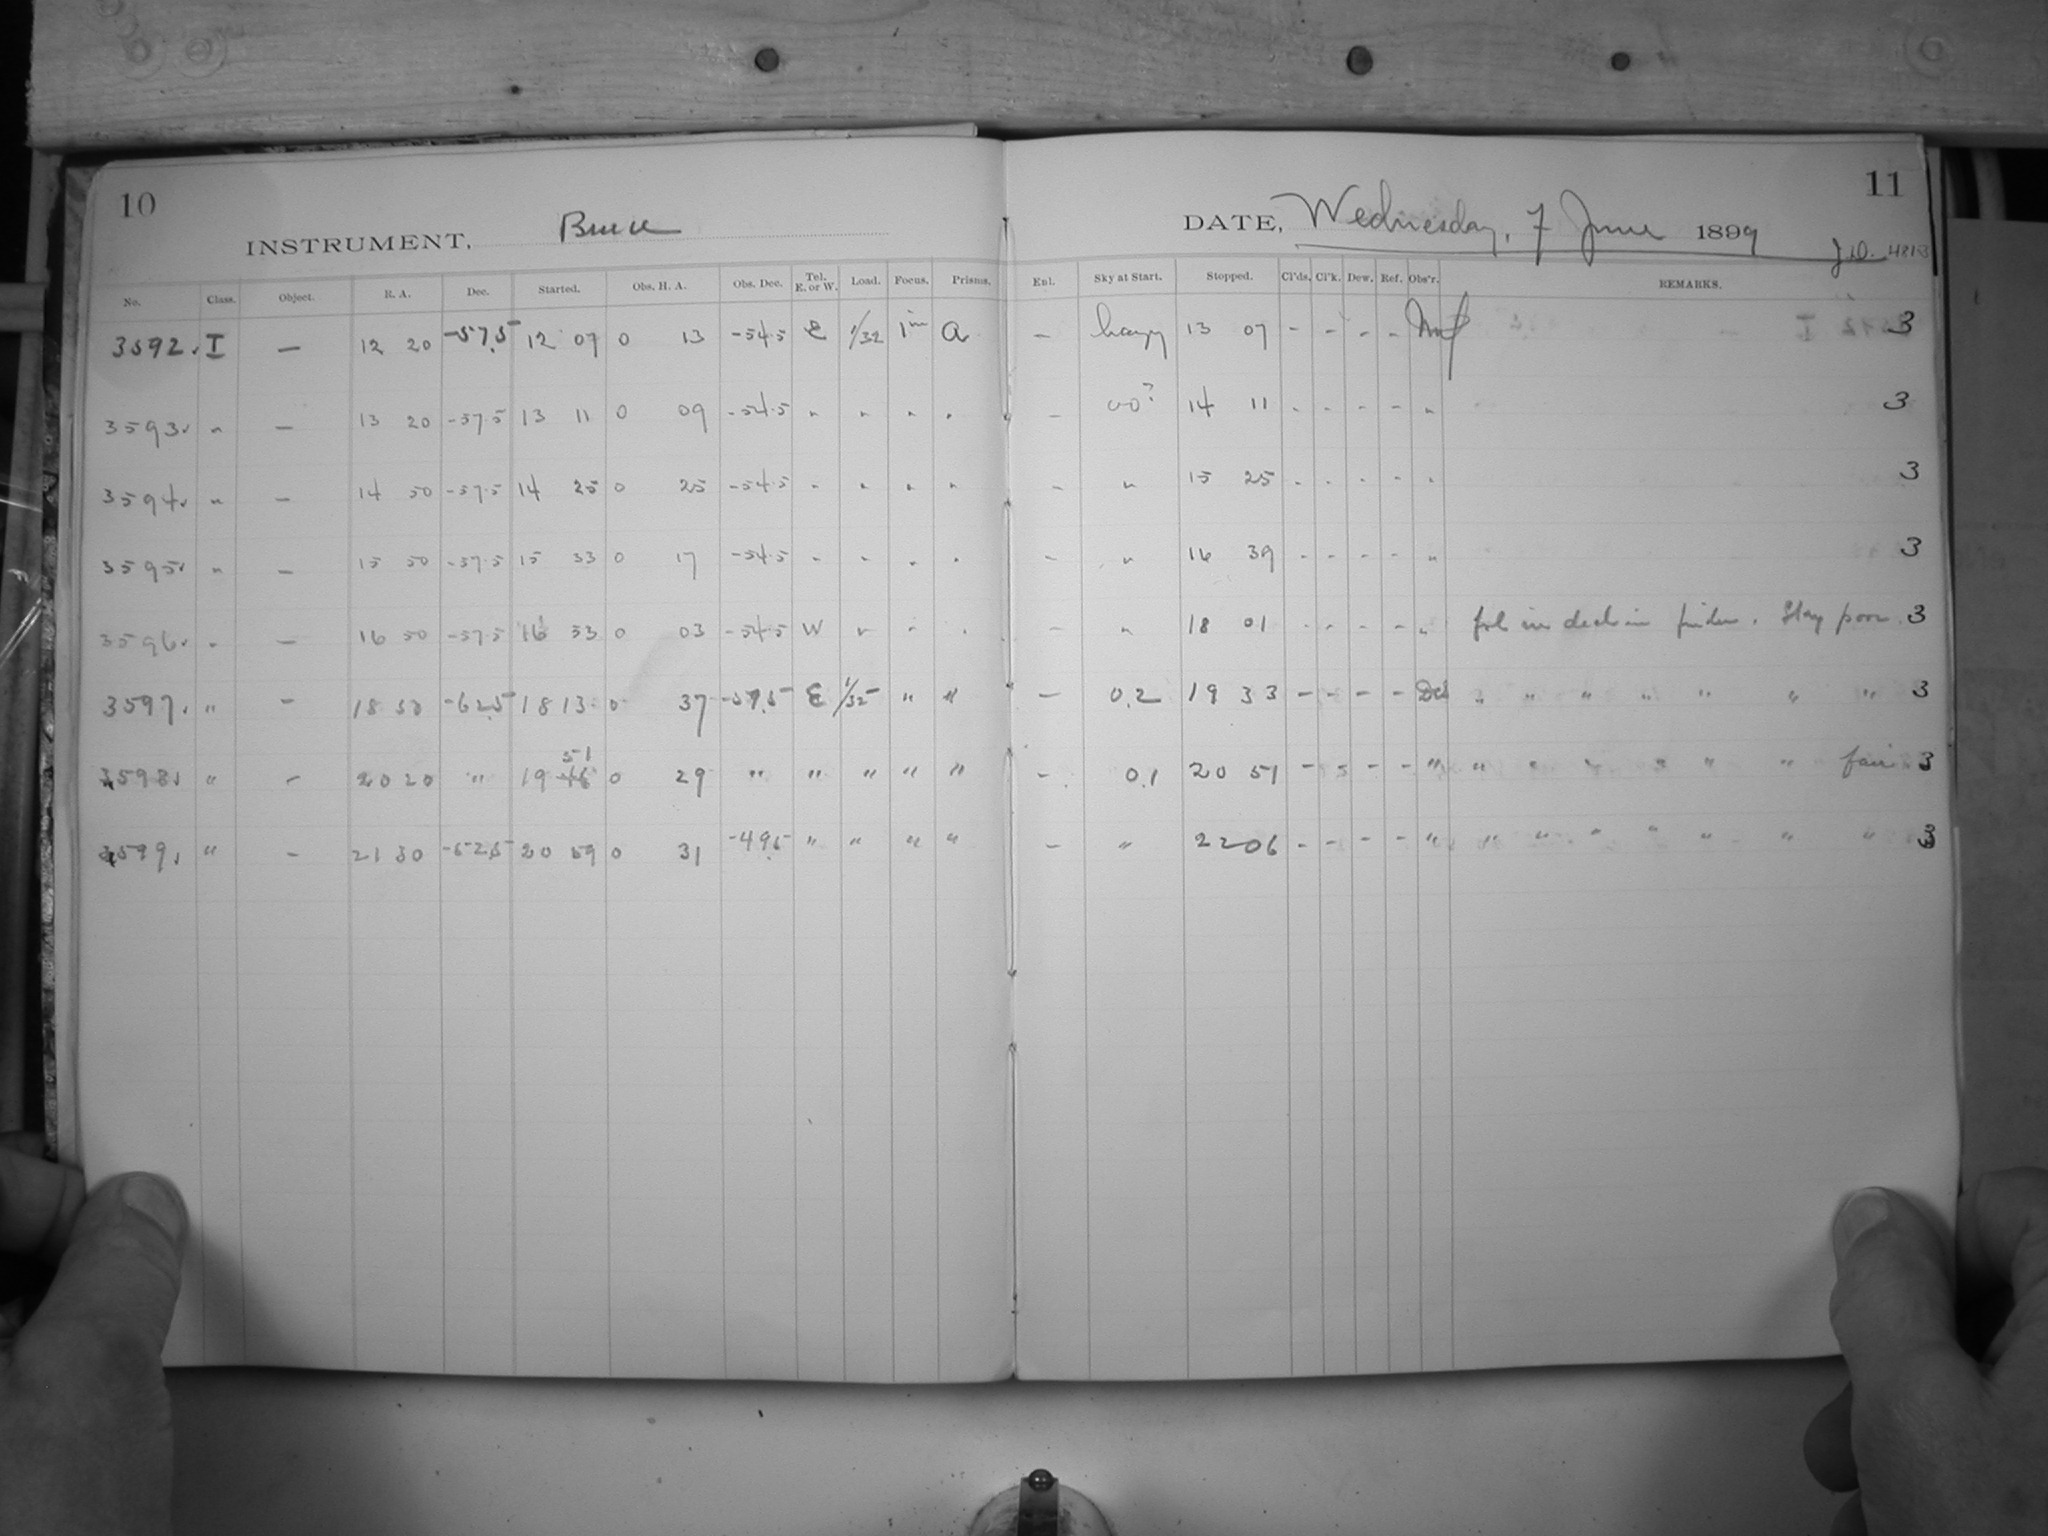 10
INSTRUMENT, Bruce
No. Class. Object. R. A. Dec. Started. Obs. H. A. Obs. Dec. Tel. E. or W. Load. Focus. Prisms.
3592. I — 12 20 -57.5 12 07 0 13 -54.5 E 1/32 1 in a
3593. " — 13 20 -57.5 13 11 0 09 -54.5 " " " "
3594. " — 14 50 -57.5 14 25 0 25 -54.5 " " " "
3595. " — 15 50 -57.5 15 33 0 17 -54.5 " " " "
3596. " — 16 50 -57.5 16 53 0 03 -54.5 W " " "
3597. " — 18 50 -62.5 18 13 0 37 -57.5 E 1/32 " "
3598. " — 20 20 " 19 51 0 29 " " " " "
3599. " — 21 30 -52.5 20 59 0 31 -49.5 " " " "
11
DATE, Wednesday, 7 June 1899
J.D. 4813
Enl. Sky at Start. Stopped. Cl'ds. Cl'k. Dew. Ref. Obs'r. REMARKS.
— hazy 13 07 - - - - 3
— 00? 14 11 - - - - " 3
— " 15 25 - - - - " 3
— " 16 39 - - - - " 3
— " 18 01 - - - - " fol. in decl. in finder. Stay poor. 3
— 0.2 19 33 - - - - " " " " " " " 3
— 0.1 20 51 - s - - " " " " " " " fair 3
— " 22 06 - - - - " " " " " " " " 3